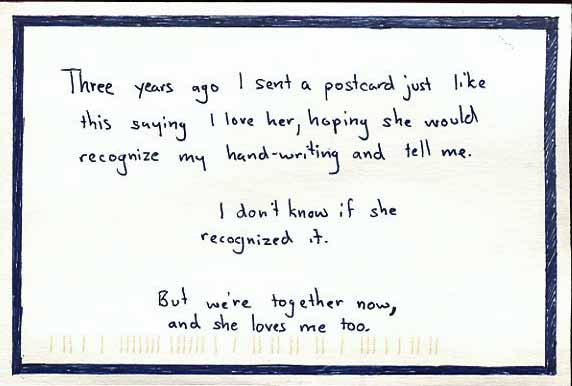 Three years ago I sent a postcard just like
this saying I love her, hoping she would
recognize my hand-writing and tell me.
I don't know if she
recognized it.
But we're together now,
and she loves me too.